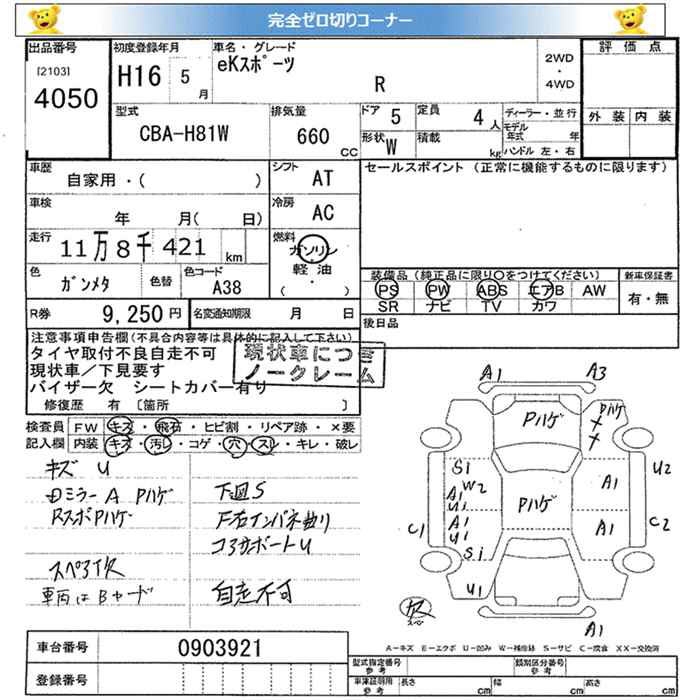 完全ゼロ切りコーナー
出品番号
[2103]
4050
初度登録年月
H16 5月
車名・グレード
eKスポーツ
R
2WD
・
4WD
評価点
外装 内装
型式
CBA-H81W
排気量
660 CC
ドア 5
定員 4人
形状 W
積載 kg
ディーラー・並行
モデル年式 年
ハンドル 左・右
車歴
自家用・( )
シフト
AT
セールスポイント (正常に機能するものに限ります)
車検
年 月( 日)
冷房
AC
走行
11万8千421 km
燃料
ガソリン
軽油
色
ガンメタ
色替
色コード
A38
装備品(純正品に限り○をつけてください)
PS PW ABS エアB AW
SR ナビ TV カワ
新車保証書
有・無
R券 9,250円
名変通知期限 月 日
後日品
注意事項申告欄(不具合内容等は具体的に記入して下さい)
タイヤ取付不良自走不可
現状車/下見要す
バイザー欠 シートカバー有り
現状車につき
ノークレーム
修復歴 有 [箇所 ]
検査員記入欄
FW キズ・飛石・ヒビ割・リペア跡・×要
内装 キズ・汚れ・コゲ・穴・スレ・キレ・破レ
キズ U
ミラーA Pハゲ
RスポPハゲ
スペアイタ欠
車両はBヤード
下回S
F右インパネ曲り
コアサポートU
自走不可
A1 A3
Pハゲ
Pハゲ
S1
W2
A1
U1
A1
U2
Pハゲ
C1
A1
U1
S1
A1
C2
U1
A1
A-キズ E-エクボ U-凹み W-補修跡 S-サビ C-腐食 XX-交換済
車台番号 0903921
登録番号
型式指定番号 参考
類別区分番号 参考
車庫証明用 参考
長さ cm
幅 cm
高さ cm